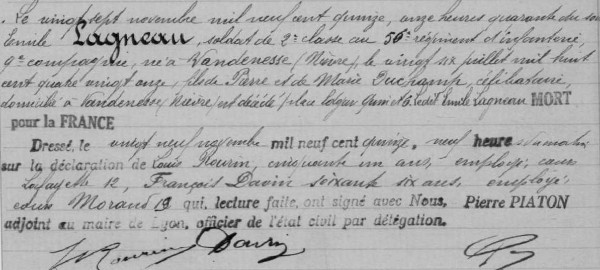 Le vingt sept novembre mil neuf cent quinze, onze heures quarante du soir
Emile Lagneau, soldat de 2e classe au 56e régiment d'infanterie,
9e compagnie, né à Vandenesse (Nièvre) le vingt six juillet mil huit
cent quatre vingt onze, fils de Pierre et de Marie Duchamp, célibataire,
domicilié à Vandenesse (Nièvre) est décédé place Edgar Quinet 6. Ledit Emile Lagneau MORT
pour la FRANCE
Dressé, le vingt neuf novembre mil neuf cent quinze, neuf heures du matin
sur la déclaration de Louis cinquante un ans, employé, cours
Lafayette 12, François Davin soixante six ans, employé,
cours Morand 19 qui, lecture faite, ont signé avec Nous, Pierre PIATON
adjoint au maire de Lyon, officier de l'état civil par délégation.
Davin